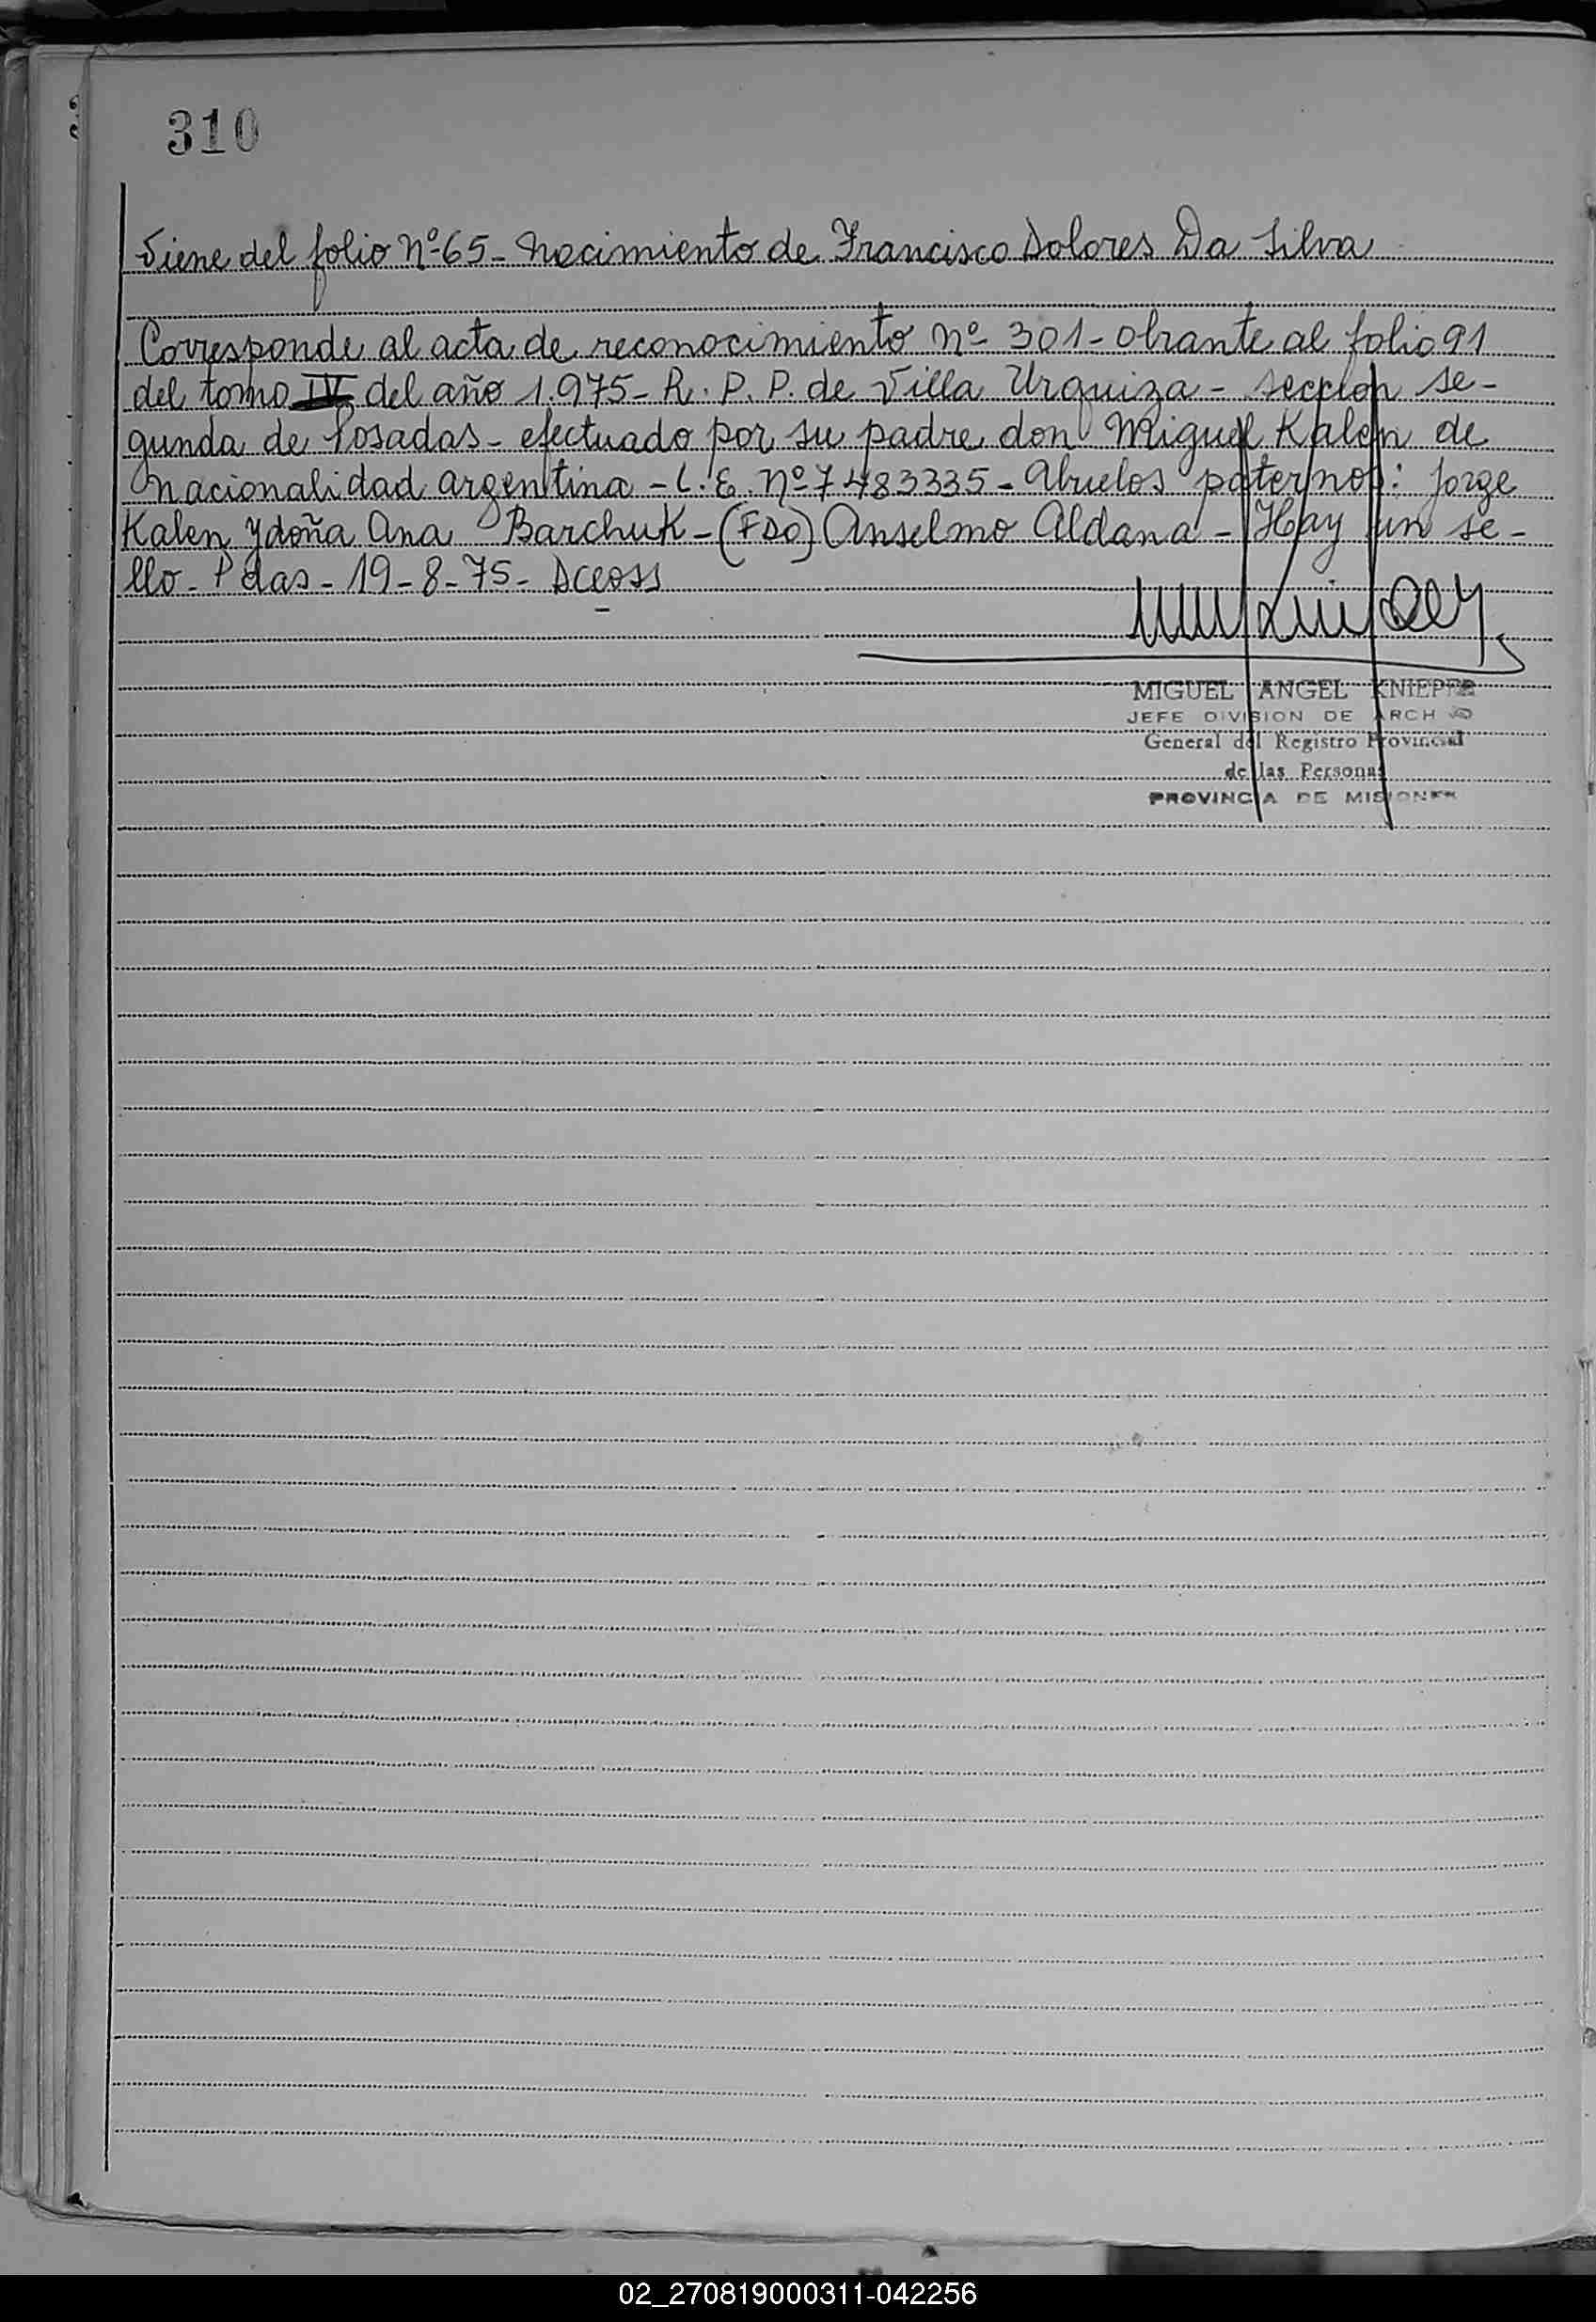 310
Viene del folio Nº 65 - Nacimiento de Francisco Dolores Da Silva
Corresponde al acta de reconocimiento nº 301 - obrante al folio 91
del tomo IV del año 1.975 - R. P. P. de Villa Urquiza - sección se-
gunda de Posadas - efectuado por su padre don Miguel Kalen de
nacionalidad argentina - L. E. Nº 7483335 - Abuelos paternos: Jorge
Kalen y doña Ana Barchuk - (FDO) Anselmo Aldana - Hay un se-
llo - Pdas - 19 - 8 - 75 -
MIGUEL ANGEL KNIEPFF
JEFE DIVISION DE ARCH
General del Registro Provincial
de las Personas
PROVINCIA DE MISIONES
02_270819000311-042256